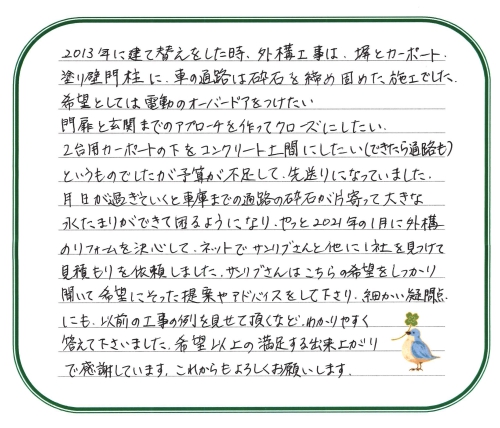 2013年に建て替えをした時、外構工事は、塀とカーポート、
塗り壁門柱に、車の通路は砕石を締め固めた施工でした。
希望としては電動のオーバードアをつけたい
門扉と玄関までのアプローチを作ってクローズにしたい。
2台用カーポートの下をコンクリート土間にしたい(できたら通路も)
というものでしたが予算が不足して、先送りになっていました。
月日が過ぎていくと車庫までの通路の砕石が片寄って大きな
水たまりができて困るようになり、やっと2021年の1月に外構
のリフォームを決心して、ネットでサンリブさんと他に1社を見つけて
見積もりを依頼しました。サンリブさんはこちらの希望をしっかり
聞いて希望にそった提案やアドバイスをして下さり、細かい疑問点
にも、以前の工事の例を見せて頂くなど、わかりやすく
答えて下さいました。希望以上の満足する出来上がり
で感謝しています。これからもよろしくお願いします。